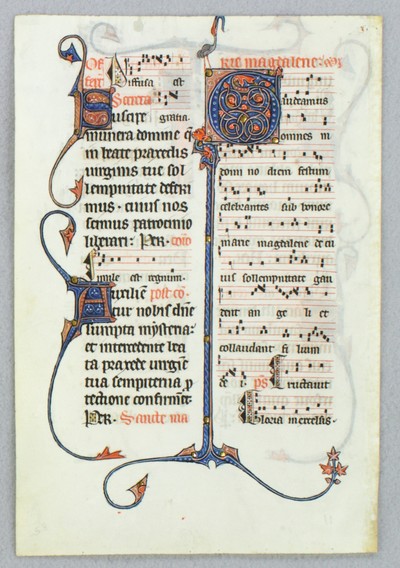 Of
fert Diffusa est
Secreta gratia
Suscipe
munera domine q̄
in beate praxedis
virginis tue sol
lempnitate deferi
mus · cuius nos
scimus patrocinio
liberari : Per · cōio
Simile est regnum ·
Auxiliē post co ·
tur nobis dn̄e
sumpta mysteria :
et intercedente bea
ta praxede virgīe
tua sempiterna p̄
tectione confirmēt
Per · Sancte ma
rie magdalene
Gaudeamus
omnes in
domi no diem festum
celebrantes sub honore
marie magdalene de cu
ius sollempnitate gau
dent an ge li et
collaudant fi lium
de i · ps Eructauit
Gloria in excelsis ·